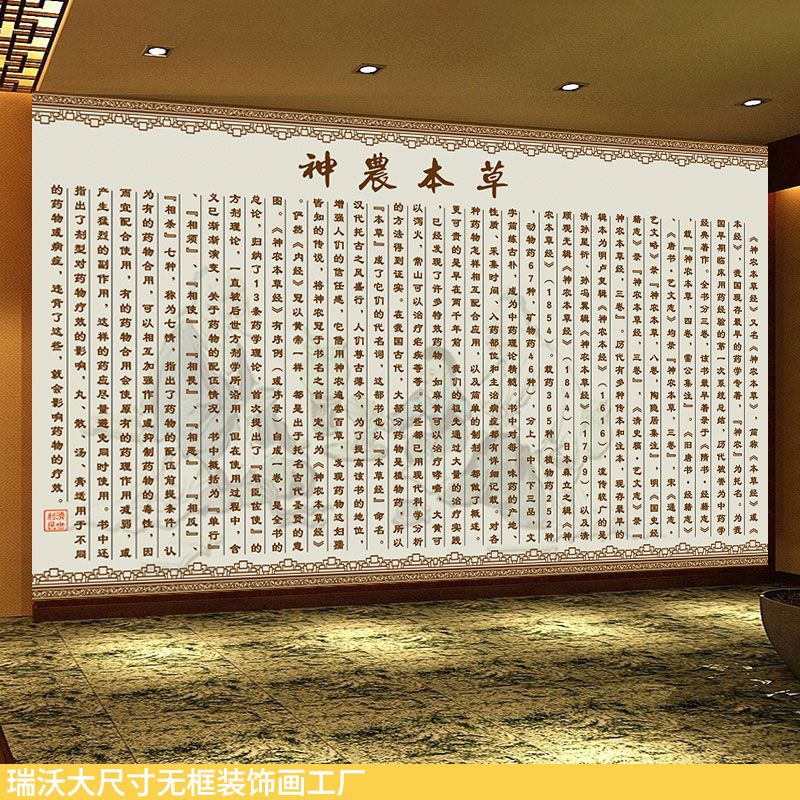 神農本草
《神农本草经》又名《神农本草》，简称《本草经》或
本经》，我国现存最早的药学专著。『神农』为托名，我
国早期临床用药经验的第一次系统总结，历代被誉为中药学
经典著作。全书分三卷，该书最早著录于《隋书·经籍志》
，载『神农本草，四卷，雷公集注』。《旧唐书·经籍志》
、《唐书·艺文志》均录『神农本草，三卷』，宋《通志
艺文略》录『神农本草，八卷，陶隐居集注』，明《国史经
籍志》录『神农本草经，三卷』，《清史稿·艺文志》录『
神农本草经，三卷』。历代有多种传本和注本，现存最早的
辑本为明卢复辑《神农本草经》（1616），流传较广的是
清孙星衍、孙冯翼辑《神农本草经》（1799），以及清
顾观光辑《神农本草经》（1844）、日本森立之辑《神
农本草经》（1854）。载药365种（植物药252种
，动物药67种，矿物药46种），分上、中、下三品，文
字简练古朴，成为中药理论精髓。书中对每一味药的产地、
性质、采集时间、入药部位和主治病症都有详细记载。对各
种药物怎样相互配合应用，以及简单的制剂，都做了概述。
更可贵的是早在两千年前，我们的祖先通过大量的治疗实践
，已经发现了许多特效药物，如麻黄可以治疗哮喘，大黄可
以泻火，常山可以治疗疟疾等等。这些都已用现代科学分析
的方法得到证实。在我国古代，大部分药物是植物药，所以
『本草』成了它们的代名词，这部书也以『本草经』命名。
汉代托古之风盛行，人们尊古薄今，为了提高该书的地位，
增强人们的信任感，它借用神农遍尝百草，发现药物这妇孺
皆知的传说，将神农冠于书名之首，定名为《神农本草经》
。俨然《内经》冠以黄帝一样，都是出于托名古代圣贤的意
图。《神农本草经》有序例（或序录）自成一卷，是全书的
总论，归纳了13条药学理论，首次提出了『君臣佐使』的
方剂理论，一直被后世方剂学所沿用，但在使用过程中，含
义已渐渐演变，关于药物的配伍情况，书中概括为『单行』
、『相须』、『相使』、『相畏』、『相恶』、『相反』
、『相杀』七种，称为七情，指出了药物的配伍前提条件，认
为有的药物合用，可以相互加强作用或抑制药物的毒性，因
而宜配合使用，有的药物合用会使原有的药理作用减弱，或
产生猛烈的副作用，这样的药应尽量避免同时使用。书中还
指出了剂型对药物疗效的影响，丸、散、汤、膏适用于不同
的药物或病症，违背了这些，就会影响药物的疗效。
济世
利民
瑞沃大尺寸无框装饰画工厂